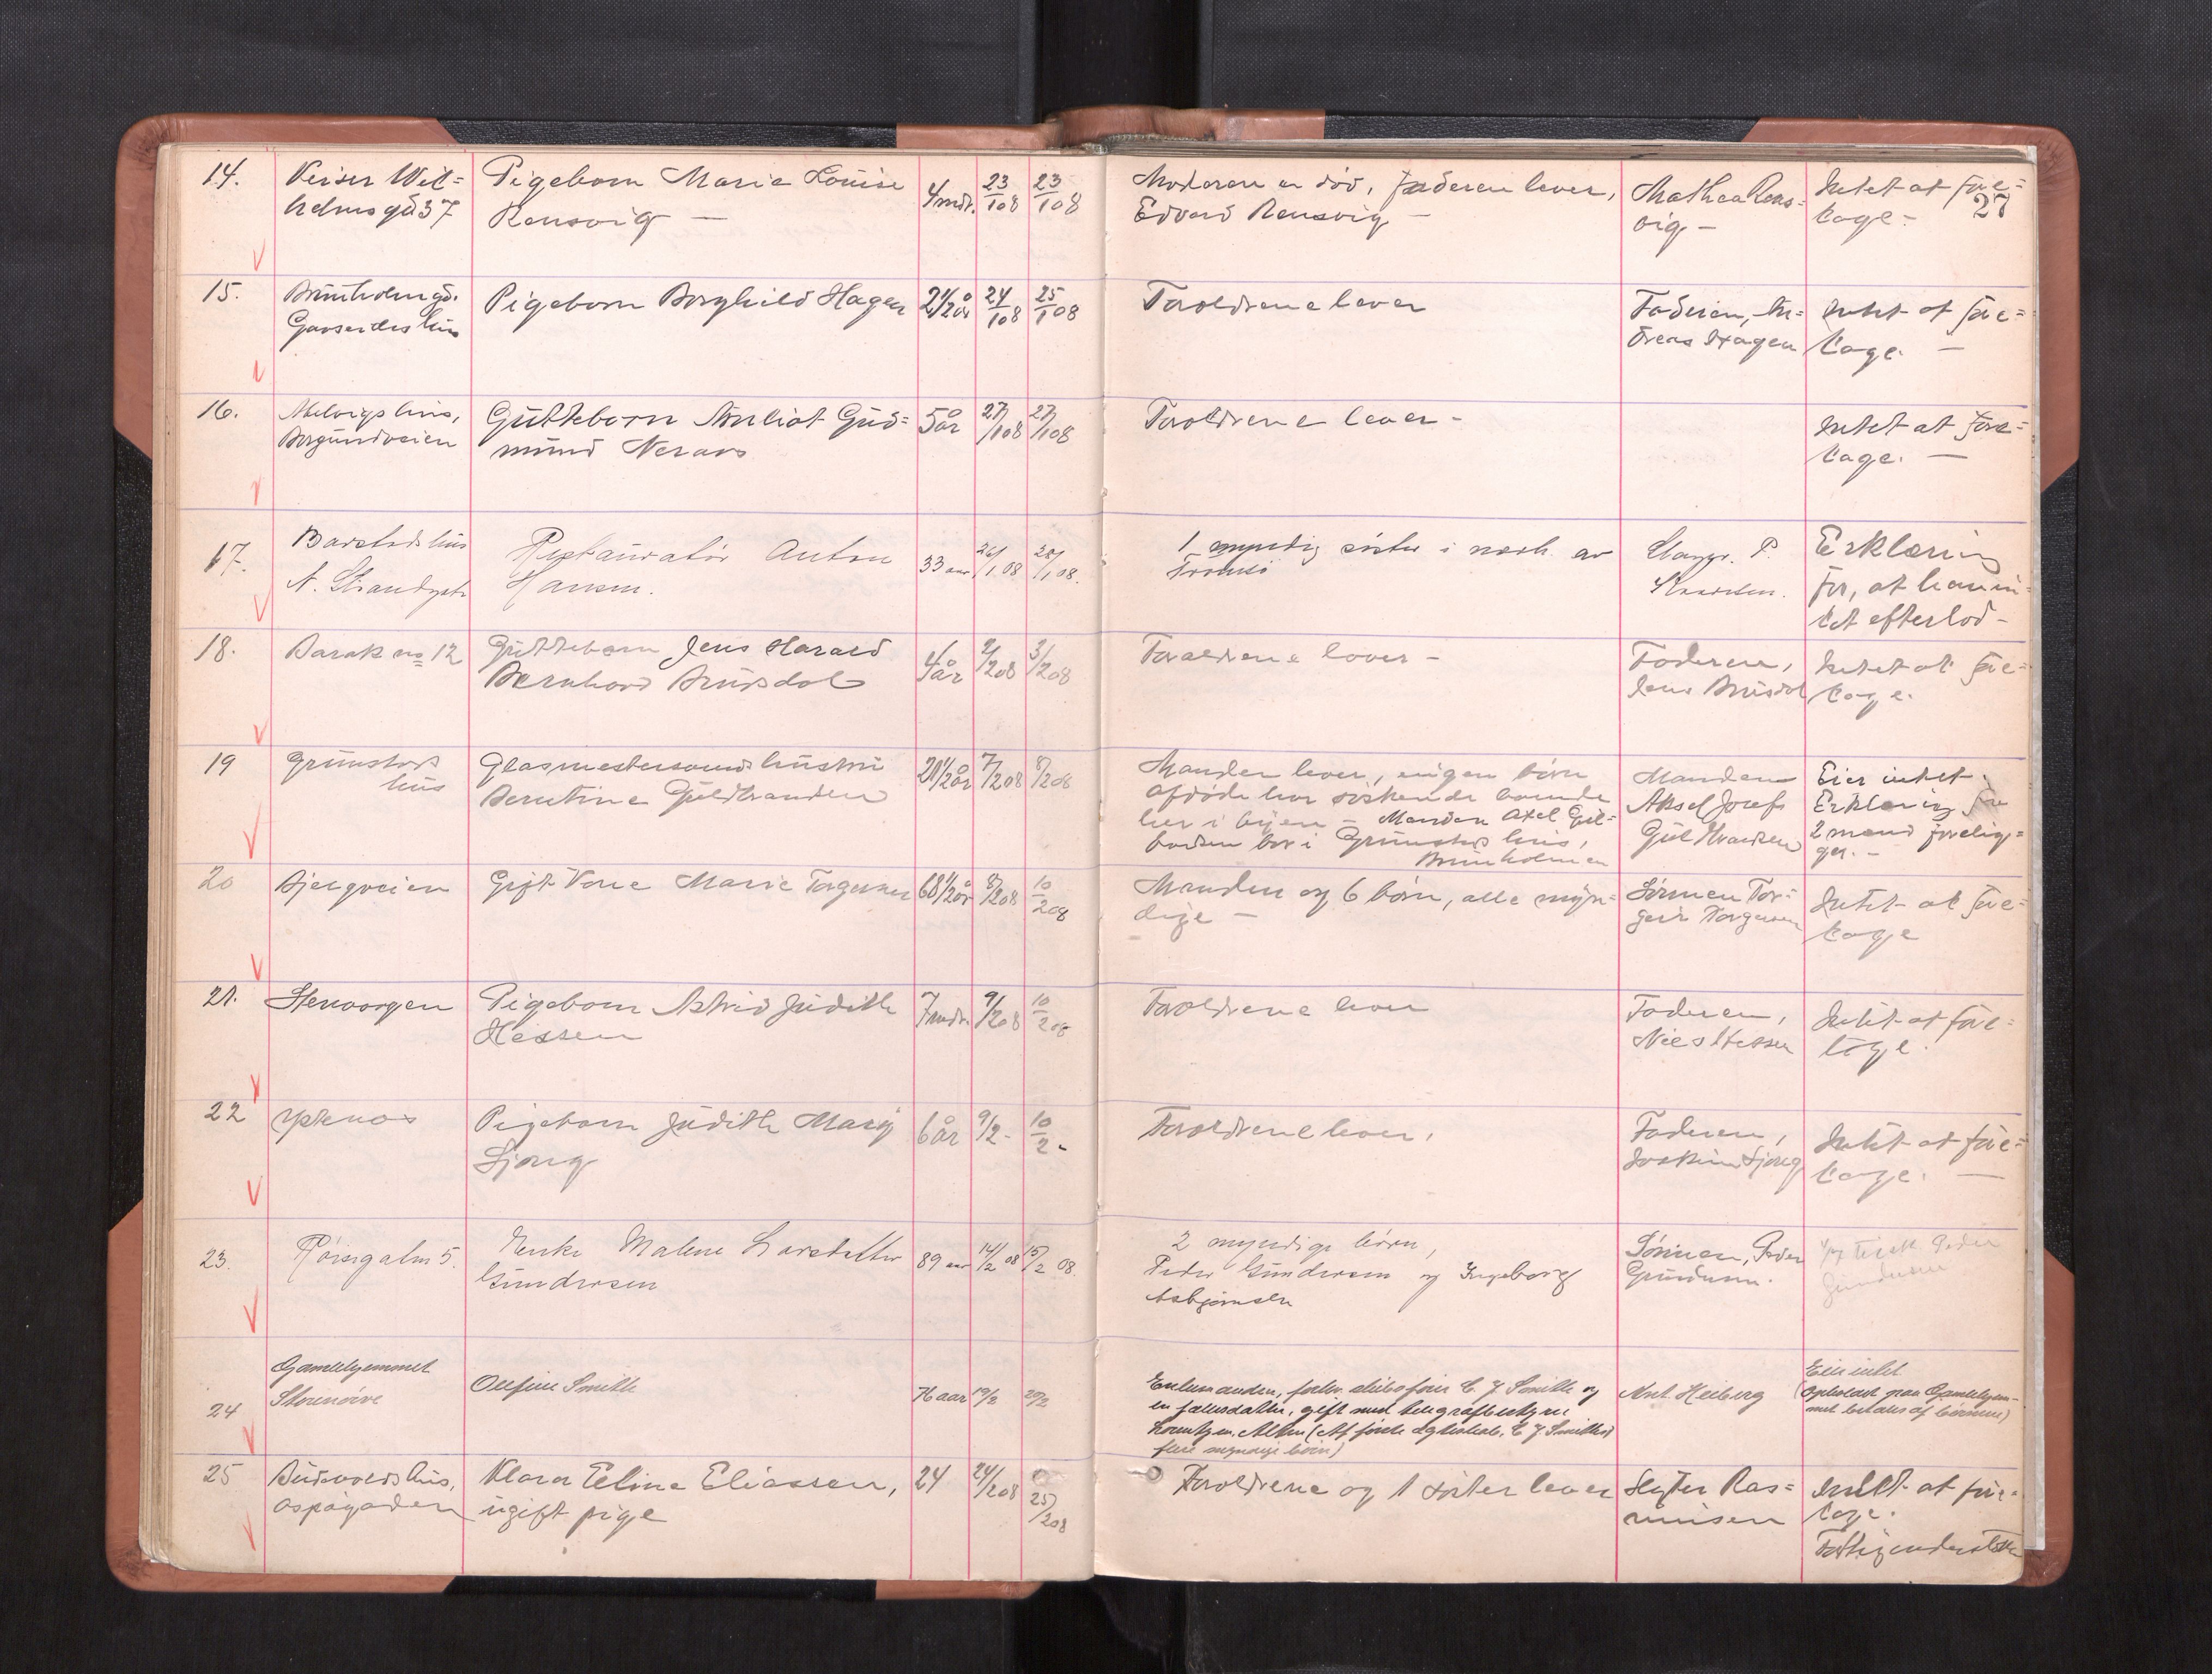 27
14.
Keiser Wil=
helmsgd 37
Pigebarn Marie Louise
Rensvig —
4 mdr.
23/1 08
23/1 08
Moderen er död, faderen lever,
Edvard Rensvig —
Mathea Rens=
vig —
Intet at fore=
tage. —
15.
Brunholmgd.
hus
Pigebarn Borghild Hagen
2 1/2 år
24/1 08
25/1 08
Forældrene lever
Faderen, An=
dreas Hagen
Intet at fore=
tage. —
16.
hus,
Borgundveien
Guttebarn Arnliot Gud=
mund
5 år
27/1 08
27/1 08
Forældrene lever —
Intet at fore=
tage. —
17.
Barstads hus
N. Strandgt.
Restauratör Anton
Hansen.
33 aar
26/1 08
28/1 08.
1 myndig söster i nærh. av
Tromsö
P.
Knudsen.
Erklæring
for, at han in=
tet efterlod —
18.
Barak no 12
Guttebarn Jens Harald
Bernhard Brusdal
4 år
2/2 08
3/2 08
Forældrene lever —
Faderen,
Jens Brusdal
Intet at fore=
tage.
19
Grimstads
hus
Glasmestersvends hustru
Berntine Guldbrandsen
21 1/2 år
7/2 08
8/2 08
Manden lever, ingen börn
Afdöde har söskende boende
her i byen — Manden Axel Gul=
brandsen bor i Grimstads hus,
Brunholmen
Manden
Aksel Josef
Gulbrandsen
Eier intet.
Erklæring fra
2 mænd forelig=
ger. —
20
Bjergveien
Gift Kone Marie Torgersen
68 1/2 år
8/2 08
10/2 08
Manden og 6 börn, alle myn=
dige —
Sönnen Tor=
geir Torgersen
Intet at fore=
tage
21.
Stenvorgen
Pigebarn Astrid Judith
Hessen
7 mdr.
9/2 08
10/2 08
Forældrene lever
Faderen,
Nils Hessen
Intet at fore=
tage.
22
Ystenes
Pigebarn Judith Marij
Sjong
6 år
9/2 -
10/2 -
Forældrene lever.
Faderen,
Joakim Sjong
Intet at fore=
tage. —
23.
Röisgalm 5.
Enke Malene Larsdatter
Gundersen
89 aar
14/2 08
15/2 08
2 myndige börn,
Peder Gundersen og Ingeborg
Asbjörnsen
Sönnen, Peder
Gundersen.
Peder
Gundersen
24
Gamlehjemmet
Storenöive
Olefine Smith
76 aar
19/2
20/2
Enkemanden, forhv. skibsförer C. J. Smith og
en fællesdatter, gift med telegrafbestyrer
(Af förste ægteskab, C J Smiths
flere myndige börn)
Ant. Heiberg
Eier intet
(Opholdet paa Gamlehjem=
met betales af börnene)
25
Budevolds hus,
Aspögaden
Klara Eline Eliassen,
ugift pige
24
24/2 08
25/2 08
Forældrene og 1 söster lever
Slagter Ras=
mussen
Intet at fore=
tage.
Fattigunderstöttet